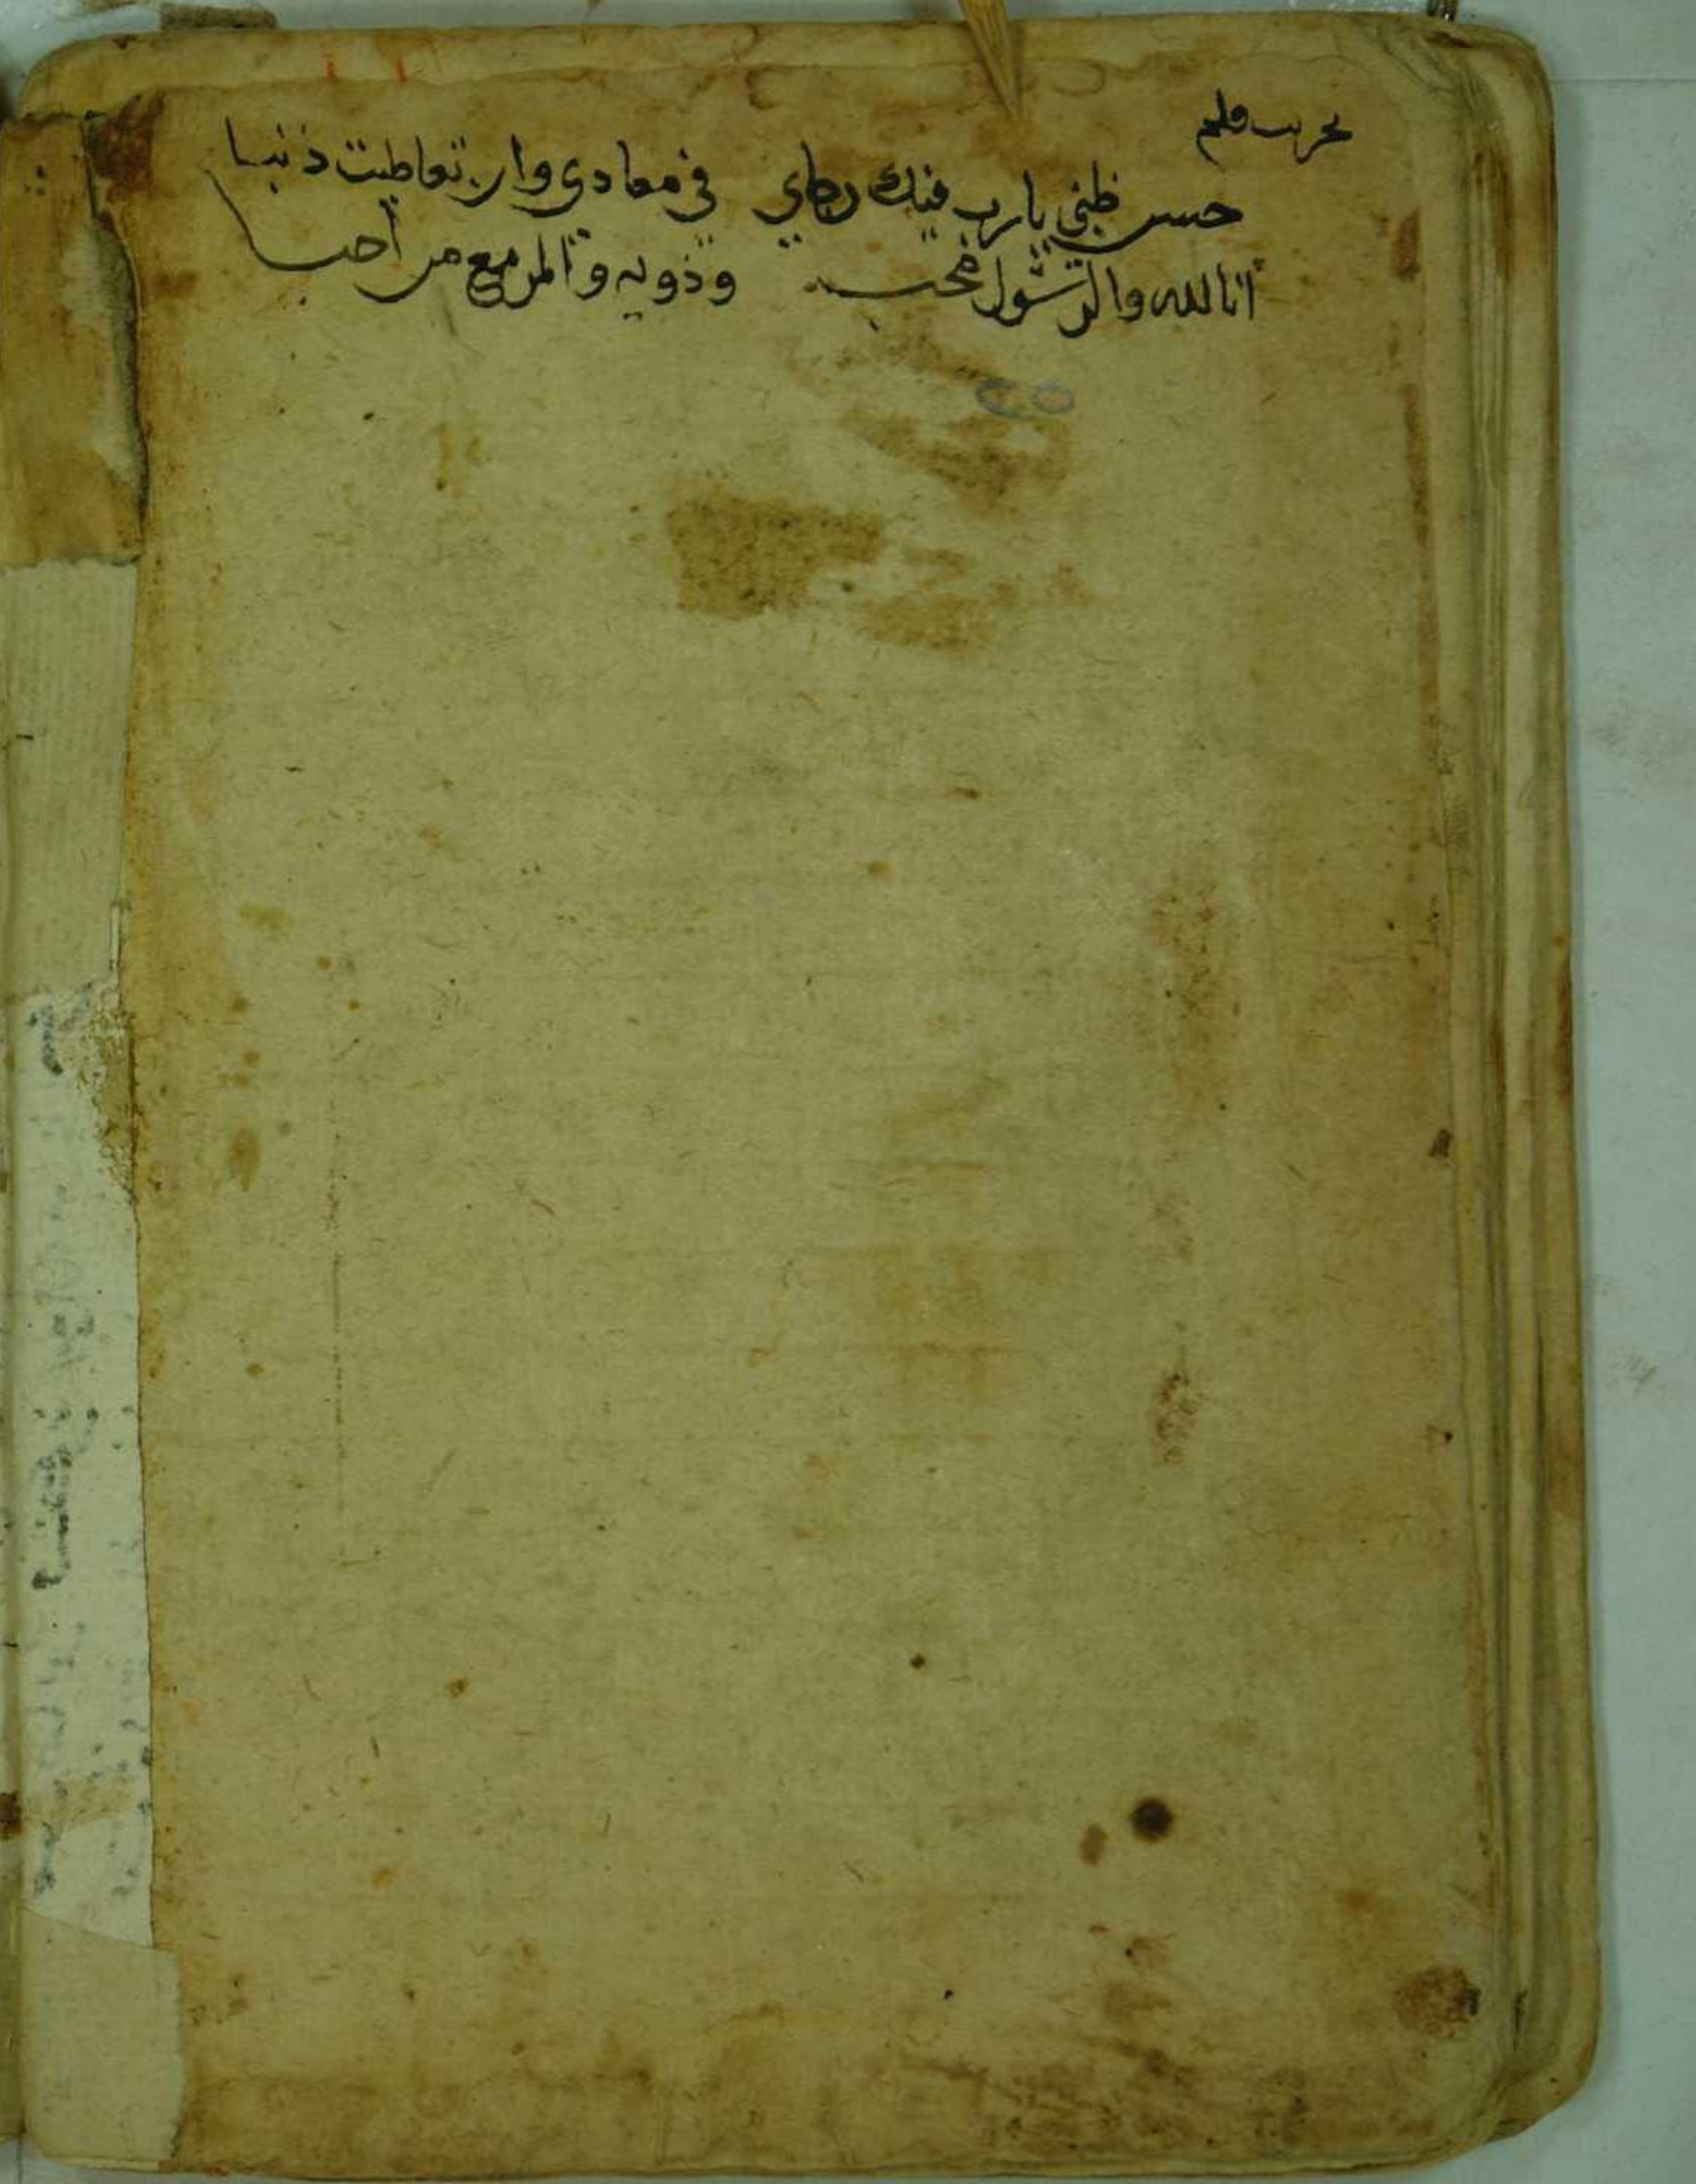 تجربت قلم
حسن ظني يا رب فيك رجاي في معادي وان تعاطيت ذنبا
أنا لله والرّسُول مُحب وذويه والمرء مع من أحبا
٢٥